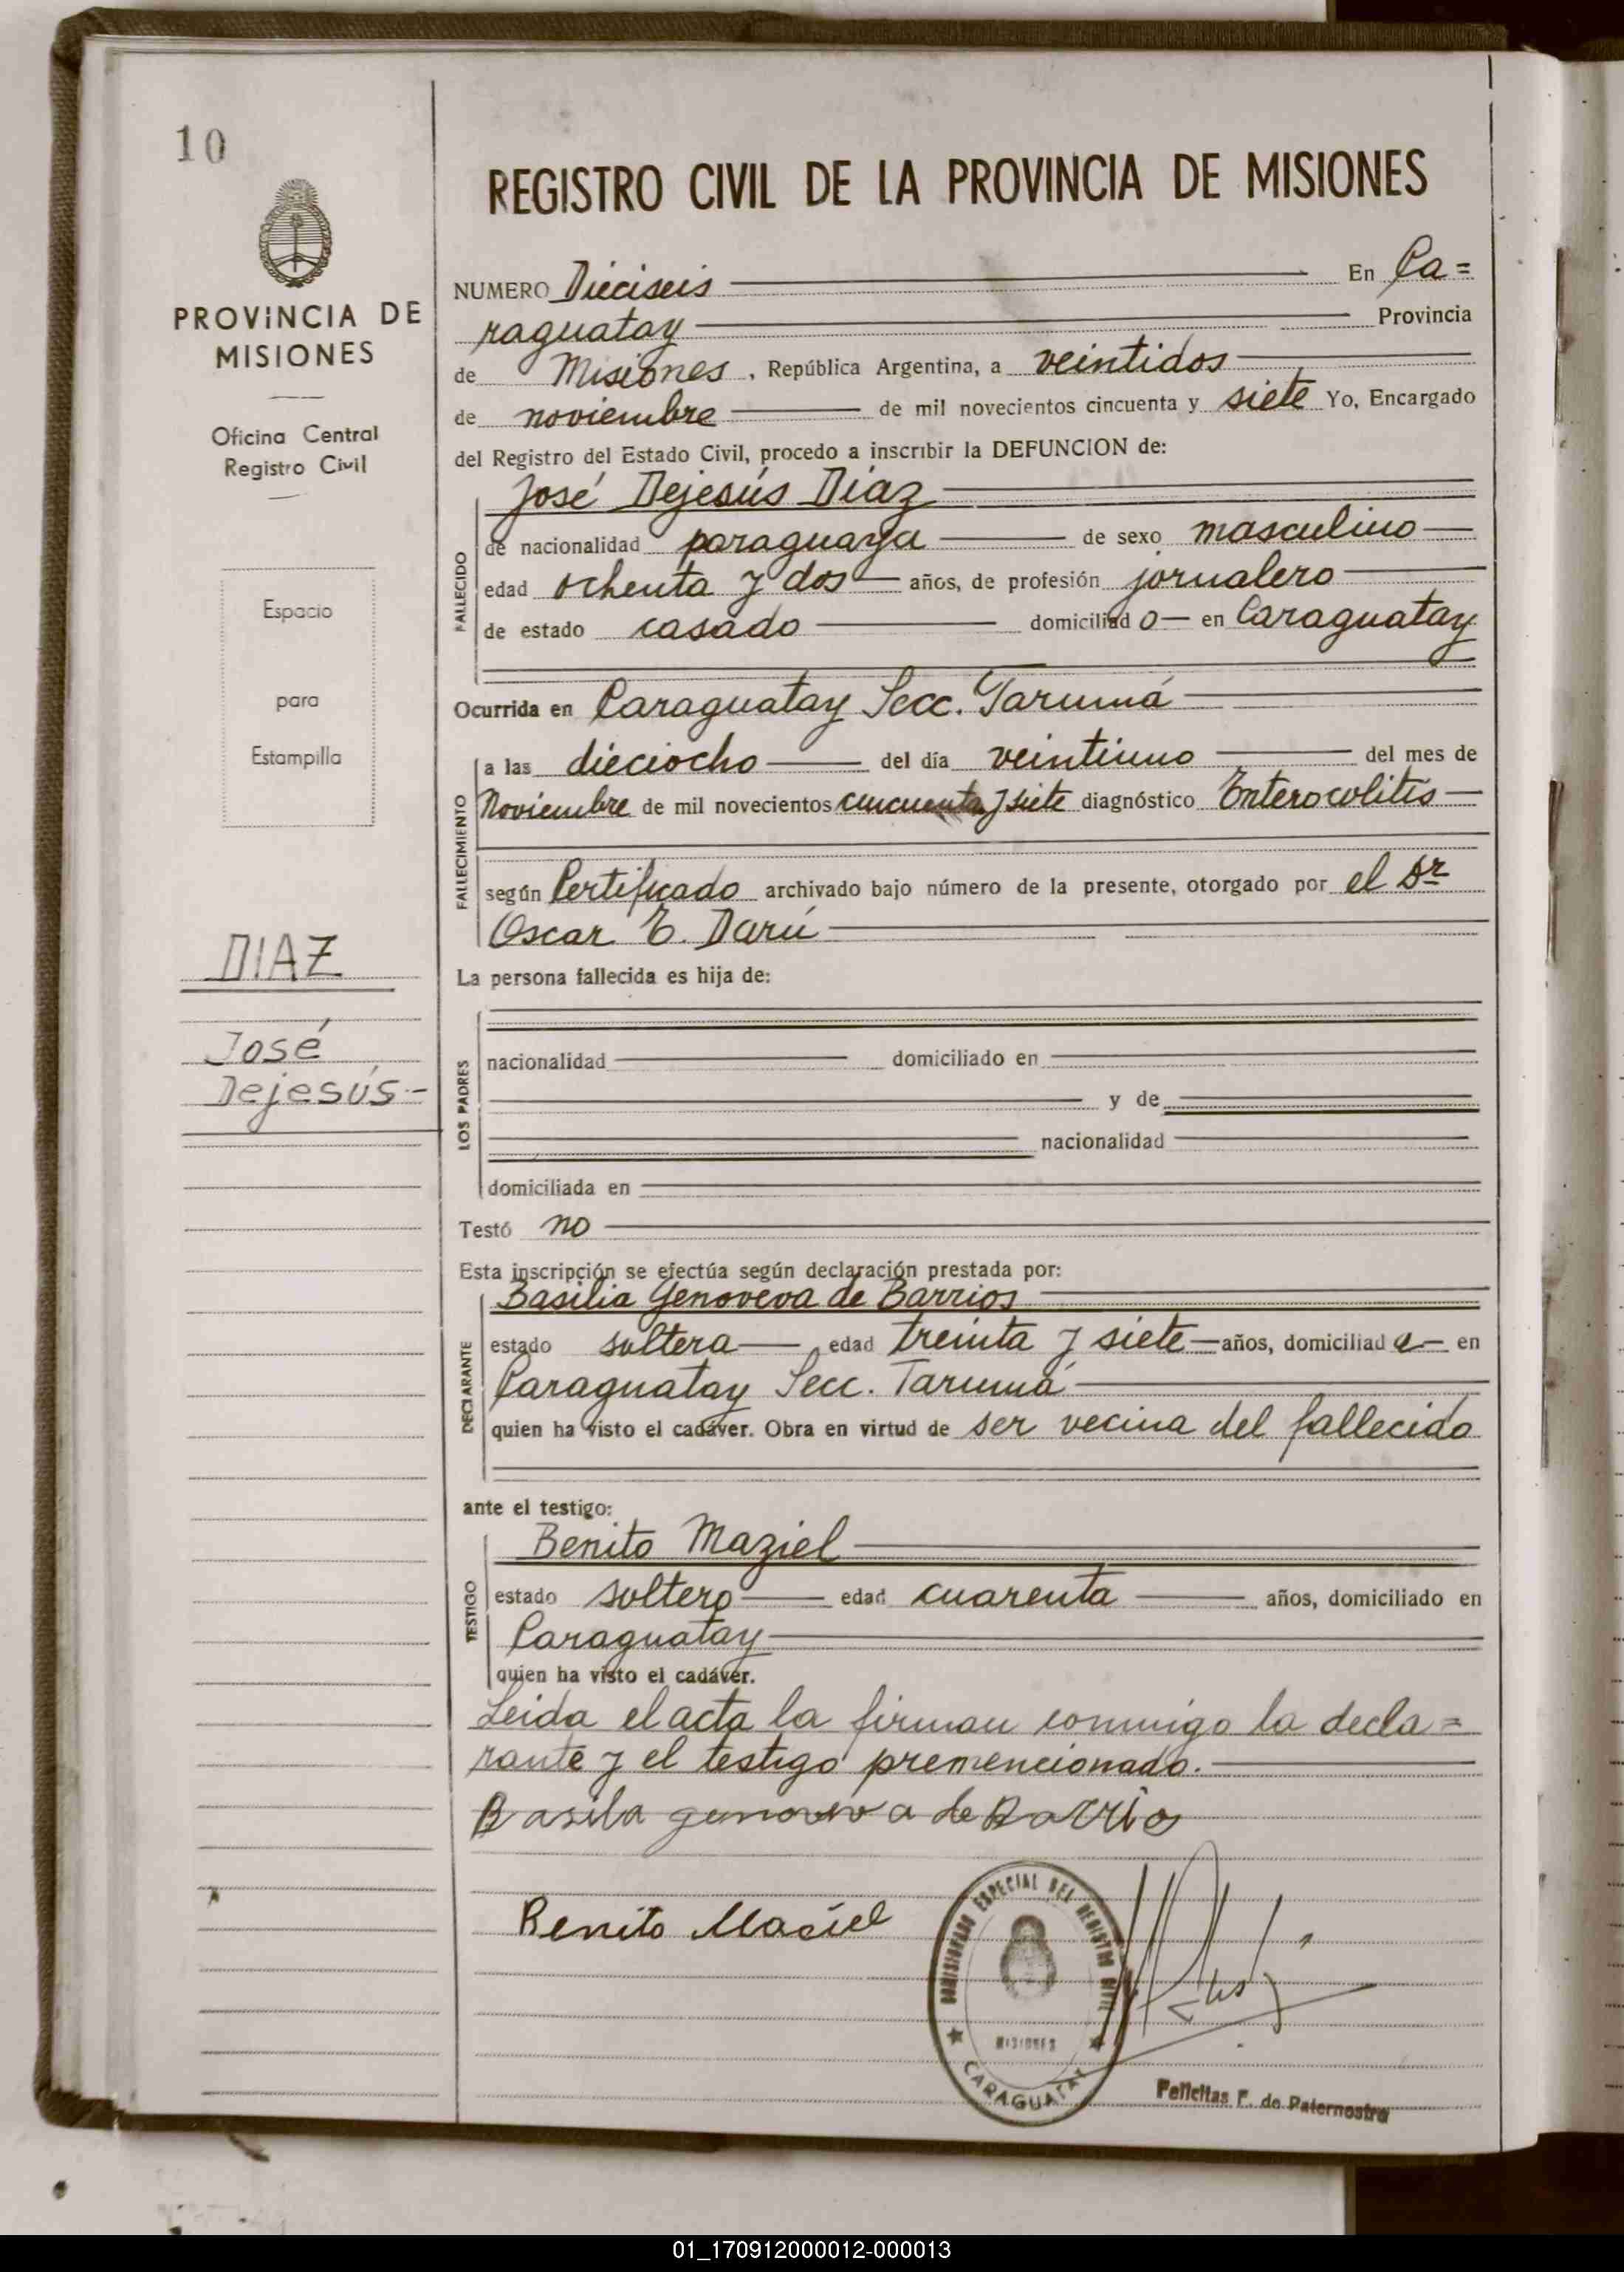 10
PROVINCIA DE
MISIONES
Oficina Central
Registro Civil
Espacio
para
Estampilla
DIAZ
José
Dejesús-
REGISTRO CIVIL DE LA PROVINCIA DE MISIONES
NUMERO Dieciseis En Ca=
raguatay Provincia
de Misiones, República Argentina, a veintidos
de noviembre de mil novecientos cincuenta y siete Yo, Encargado
del Registro del Estado Civil, procedo a inscribir la DEFUNCION de:
FALLECIDO
José Dejesús Díaz
de nacionalidad paraguaya de sexo masculino
edad ochenta y dos años, de profesión jornalero
de estado casado domiciliad o en Caraguatay
Ocurrida en Caraguatay Secc. Tarumá
FALLECIMIENTO
a las dieciocho del día veintiuno del mes de
Noviembre de mil novecientos cincuenta y siete diagnóstico Enterocolitis
según Certificado archivado bajo número de la presente, otorgado por el Dr
Oscar E. Darú
La persona fallecida es hija de:
LOS PADRES
nacionalidad domiciliado en
y de
nacionalidad
domiciliada en
Testó no
Esta inscripción se efectúa según declaración prestada por:
DECLARANTE
Basilia Genoveva de Barrios
estado soltera edad treinta y siete años, domiciliad a en
Caraguatay Secc. Tarumá
quien ha visto el cadáver. Obra en virtud de ser vecina del fallecido
ante el testigo:
TESTIGO
Benito Maziel
estado soltero edad cuarenta años, domiciliado en
Caraguatay
quien ha visto el cadáver.
Leida el acta la firman conmigo la decla=
rante y el testigo premencionado.
Basila genoveva de Barrio
Benito Maciel
COMISIONADO ESPECIAL DEL REGISTRO CIVIL
MISIONES
CARAGUATAY
Felicitas F. de Paternostro
01_170912000012-000013